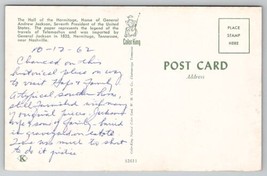 The Hall of the Hermitage, Home of General
Andrew Jackson, Seventh President of the United
States. The paper represents the legend of the
travels of Telemachus and was imported by
General Jackson in 1835. Hermitage, Tennessee,
near Nashville.
10-12-62
Chanced on this
historical place on way
to visit Hap & family
A typical southern home
still furnished with many
of original pieces. Jackson
wife & some of family buried
in graveyard on estate
Time was much too short
to do it justice
K
Color King
POST CARD
Address
PLACE
STAMP
HERE